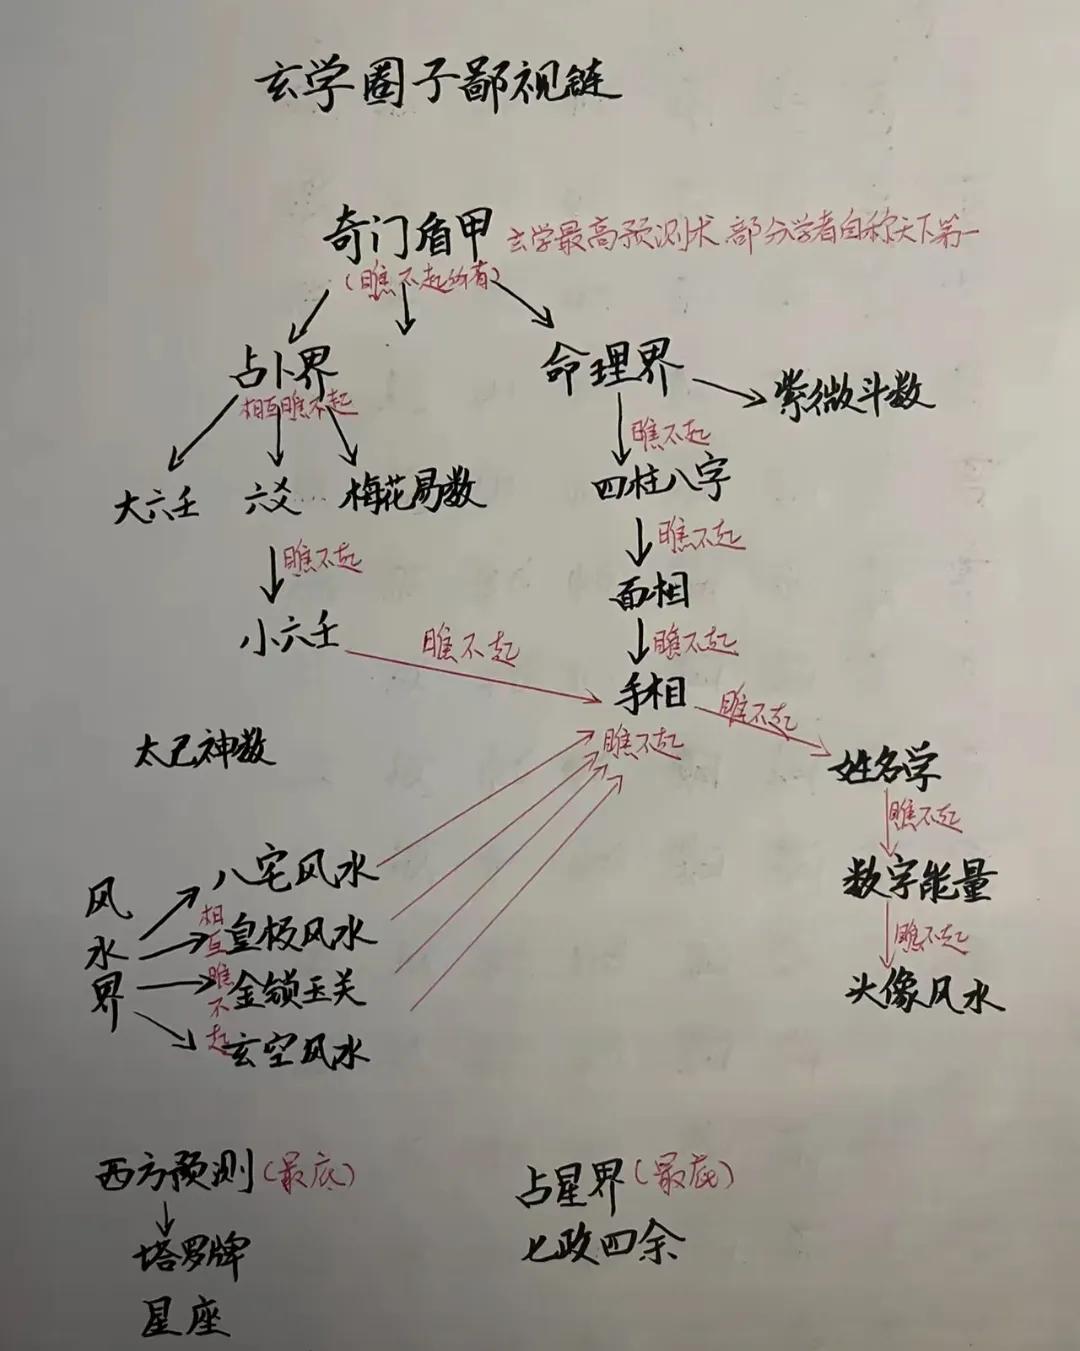 玄学圈子鄙视链
奇门盾甲 玄学最高预测术 部分学者自称天下第一
(瞧不起所有)
占卜界
相互瞧不起
命理界
紫微斗数
瞧不起
大六壬 六爻 … 梅花易数
四柱八字
瞧不起
瞧不起
面相
小六壬
瞧不起
瞧不起
手相
瞧不起
瞧不起
太乙神数
姓名学
瞧不起
数字能量
瞧不起
头像风水
风水界
相互瞧不起
八宅风水
皇极风水
金锁玉关
玄空风水
西方预测(最底)
塔罗牌
星座
占星界(最底)
七政四余